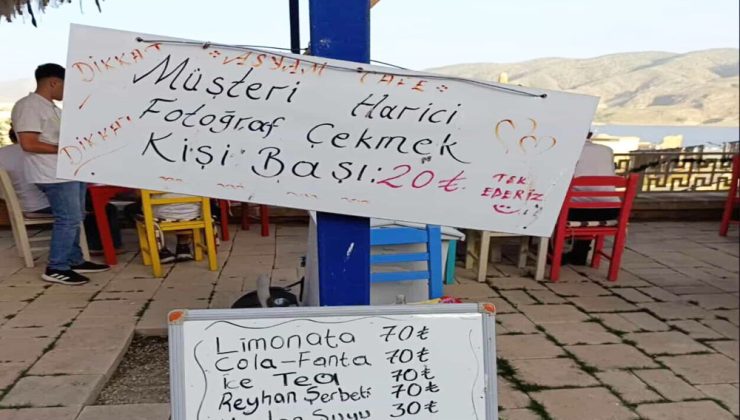 DİKKAT
ASYAM CAFE
Müşteri Harici
Fotoğraf Çekmek
Kişi Başı: 20₺
DİKKAT
TEK
EDERİZ
Limonata 70₺
Cola-Fanta 70₺
ice Tea 70₺
Reyhan Şerbeti 70₺
Suyu 30₺